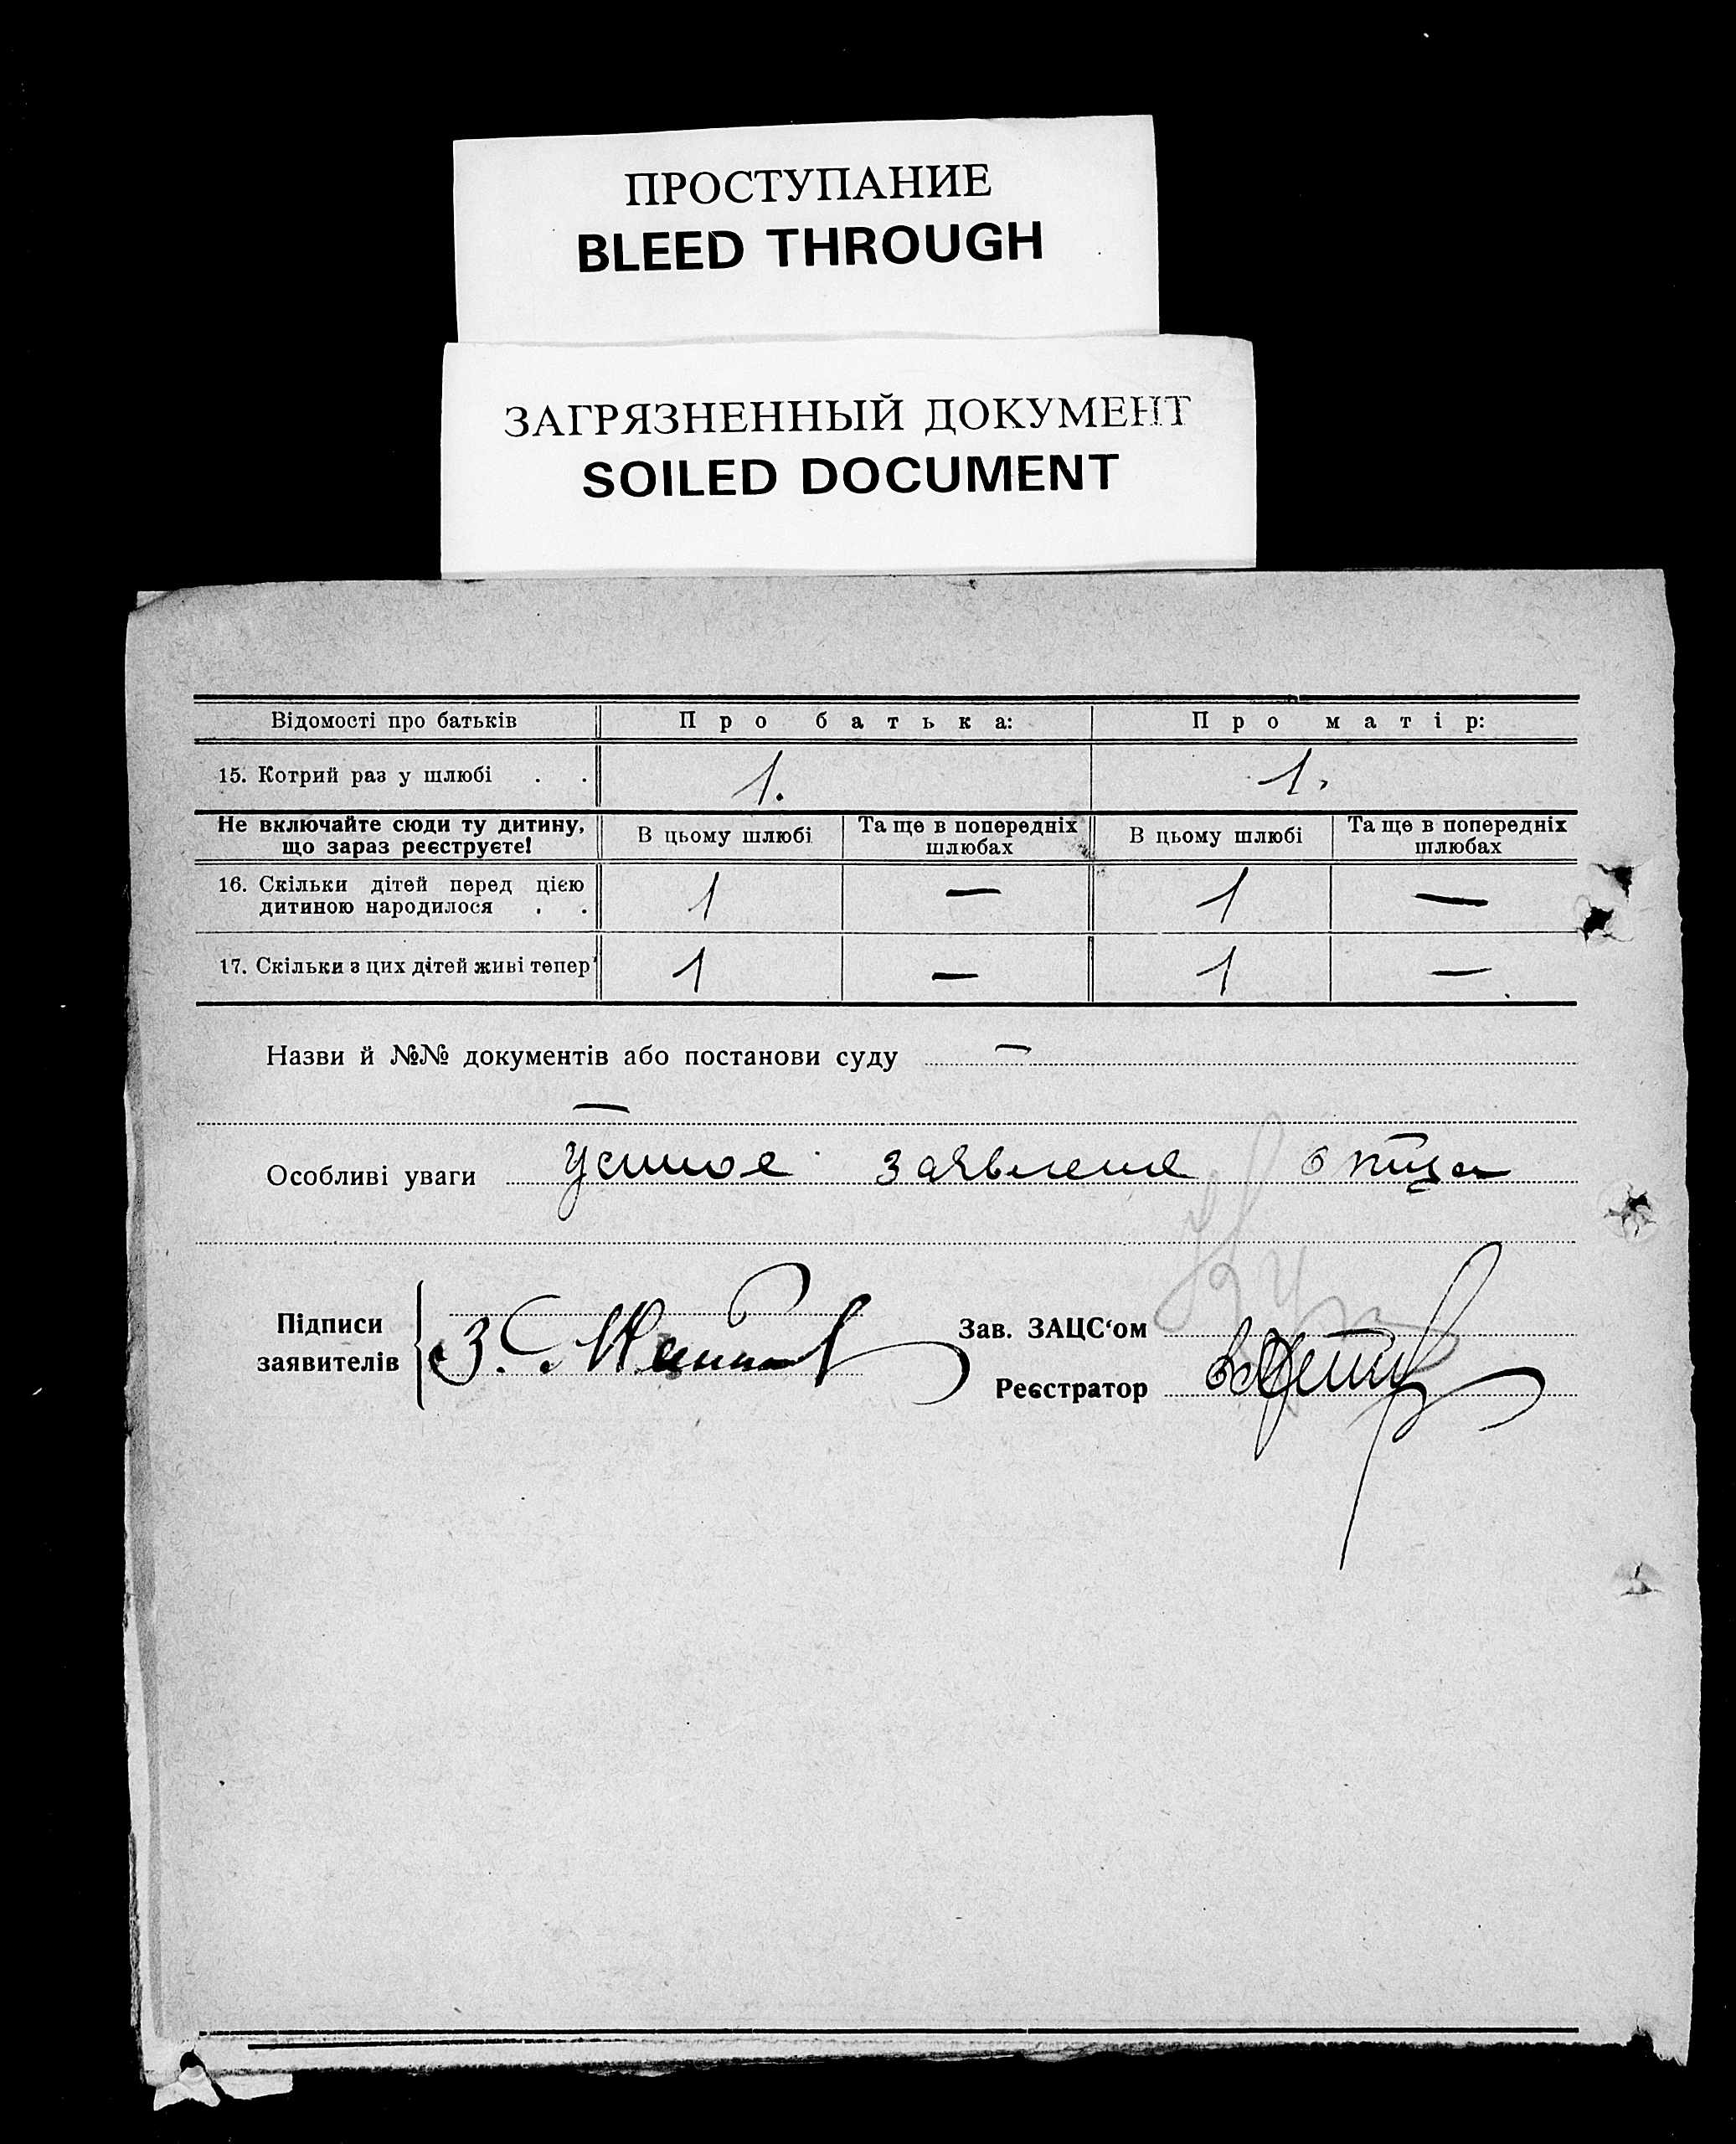 ПРОСТУПАНИЕ
BLEED THROUGH
ЗАГРЯЗНЕННЫЙ ДОКУМЕНТ
SOILED DOCUMENT
Відомості про батьків Про батька: Про матір:
15. Котрий раз у шлюбі . . 1. 1.
Не включайте сюди ту дитину, що зараз реєструєте! В цьому шлюбі Та ще в попередніх шлюбах В цьому шлюбі Та ще в попередніх шлюбах
16. Скільки дітей перед цією дитиною народилося . . 1 — 1 —
17. Скільки з цих дітей живі тепер 1 — 1 —
Назви й №№ документів або постанови суду —
—
Особливі уваги Устное заявление отца
Підписи заявителів З.
Зав. ЗАЦС‘ом
Реєстратор